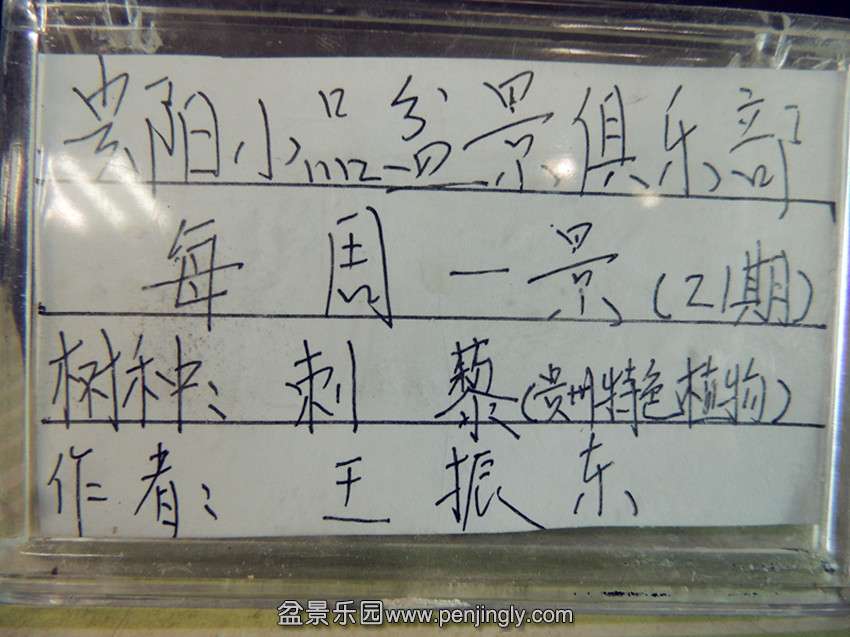 贵阳小品盆景俱乐部
每周一景(21期)
树种:刺藜(贵州特色植物)
作者:王振东
盆景乐园www.penjingly.com